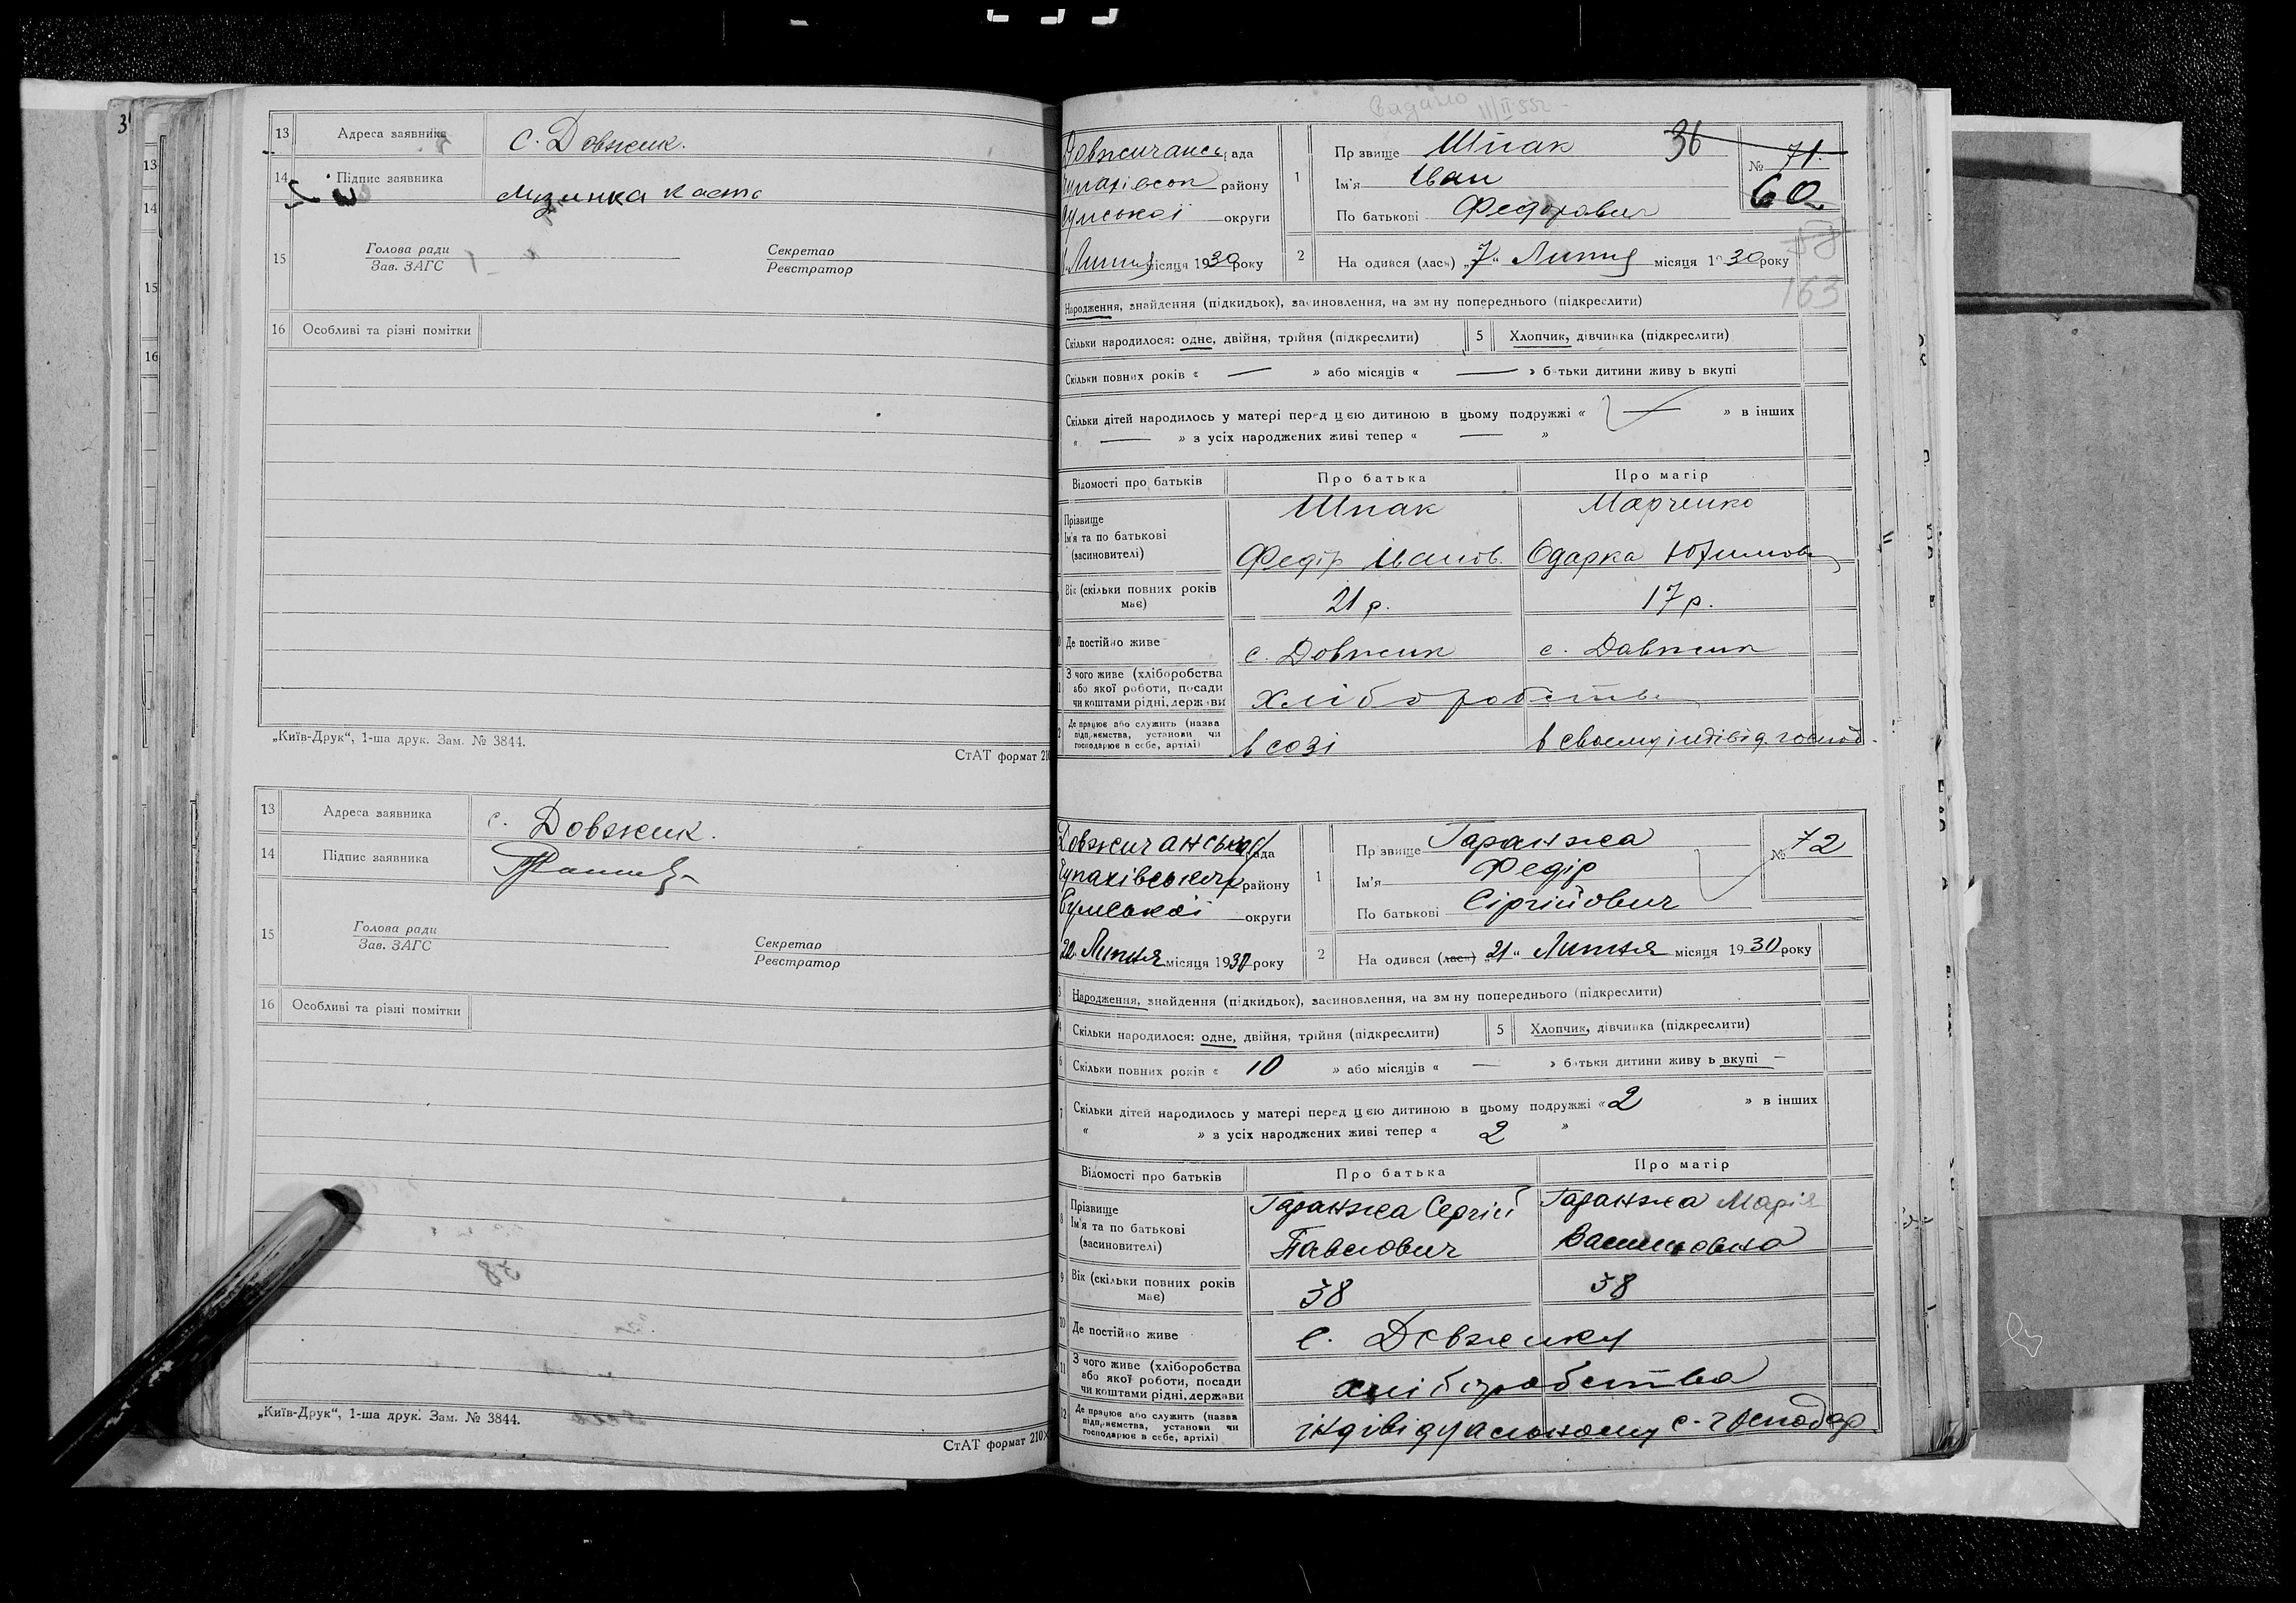 3
13 Адреса заявника с. Довжик.
14 Підпис заявника Музинка Кость
15 Голова ради
Зав. ЗАГС
Секретар
Реєстратор
16 Особливі та різні помітки
„Київ-Друк“, 1-ша друк. Зам. № 3844.
СтАТ формат 210
13 Адреса заявника с. Довжик.
14 Підпис заявника
15 Голова ради
Зав. ЗАГС
Секретар
Реєстратор
16 Особливі та різні помітки
„Київ-Друк“, 1-ша друк. Зам. № 3844.
СтАТ формат 210×
13
14
15
16
Видано 11/II 55г
Довжичанськ рада
району
Сумської округи
Липня місяця 1930 року
1 Прізвище Шпак 36
Ім'я Іван
По батькові Федорович
№ 71.
60
58
163
2 На одився (лася) „7“ Липня місяця 1930 року
Народження, знайдення (підкидьок), засиновлення, на зм ну попереднього (підкреслити)
Скільки народилося: одне, двійня, трійня (підкреслити) 5 Хлопчик, дівчинка (підкреслити)
Скільки повних років « — » або місяців « — » б тьки дитини живу ь вкупі
Скільки дітей народилось у матері перед цією дитиною в цьому подружжі « — » в інших
« — » з усіх народжених живі тепер « — »
Відомості про батьків Про батька Про матір
Прізвище Шпак Марченко
Ім'я та по батькові
(засиновителі) Федір Іванов. Одарка Юхимовн
Вік (скільки повних років
має) 21 р. 17 р.
Де постійно живе с. Довжик с. Давжик
З чого живе (хліборобства
або якої роботи, посади
чи коштами рідні, держави хліборобств
Де працює або служить (назва
підприємства, установи чи
господарює в себе, артілі) в созі в своему індівід. господ.
Довжичанська рада
Чупахівського району
Сумської округи
22 Липня місяця 1930 року
1 Прізвище Гаранжа
Ім'я Федір
По батькові Сіргійович
№ 72
2 На одився (лася) „21“ Липня місяця 1930 року
3 Народження, знайдення (підкидьок), засиновлення, на зм ну попереднього (підкреслити)
4 Скільки народилося: одне, двійня, трійня (підкреслити) 5 Хлопчик, дівчинка (підкреслити)
6 Скільки повних років « 10 » або місяців « — » батьки дитини живу ь вкупі —
7 Скільки дітей народилось у матері перед цією дитиною в цьому подружжі « 2 » в інших
« » з усіх народжених живі тепер « 2 »
Відомості про батьків Про батька Про матір
8 Прізвище Гаранжа Сергій Гаранжа Марія
Ім'я та по батькові
(засиновителі) Павлович Василовна
9 Вік (скільки повних років
має) 38 38
10 Де постійно живе с. Довжику
11 З чого живе (хліборобства
або якої роботи, посади
чи коштами рідні, держави хліборобства
12 Де працює або служить (назва
підприємства, установи чи
господарює в себе, артілі) індівідуальному с-господар